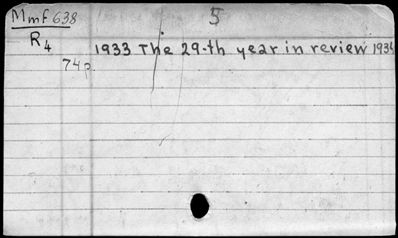 Mmf 638
5
R4
1933 The 29-th year in review
74p.